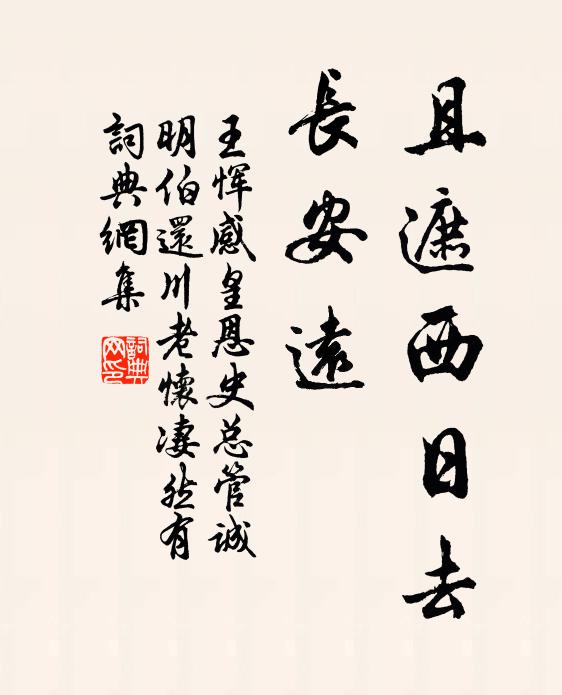 且遮西日去
長安遠
王恽感皇恩史总管誠
明伯還川老懷凄然有
詞典網集
詞典网印